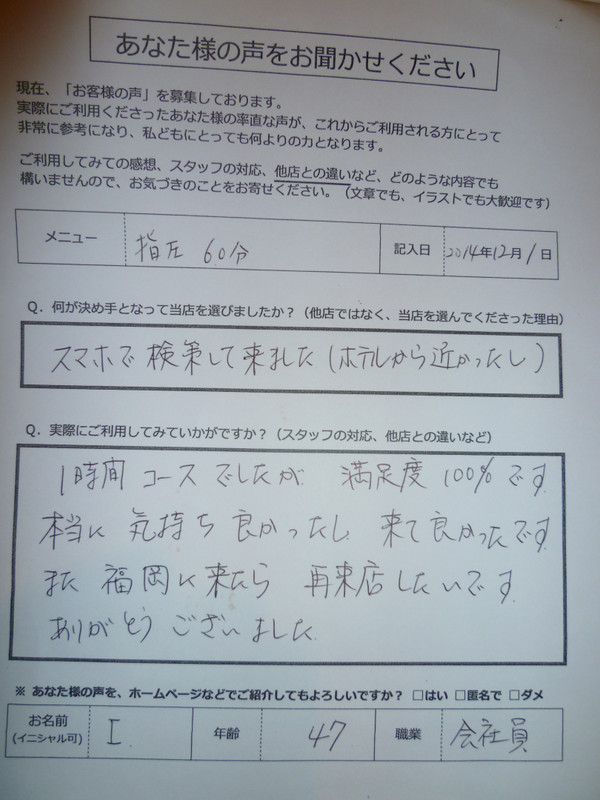 あなた様の声をお聞かせください
現在、「お客様の声」を募集しております。
実際にご利用くださったあなた様の率直な声が、これからご利用される方にとって
非常に参考になり、私どもにとっても何よりの力となります。
ご利用してみての感想、スタッフの対応、他店との違いなど、どのような内容でも
構いませんので、お気づきのことをお寄せください。（文章でも、イラストでも大歓迎です）
メニュー 指圧 60分 記入日 2014年12月1日
Q．何が決め手となって当店を選びましたか？（他店ではなく、当店を選んでくださった理由）
スマホで検策して来ました（ホテルから近かったし）
Q．実際にご利用してみていかがですか？（スタッフの対応、他店との違いなど）
1時間 コースでしたが 満足度100％です
本当に気持ち良かったし 来て良かったです
また福岡に来たら 再来店したいです
ありがとうございました
※ あなた様の声を、ホームページなどでご紹介してもよろしいですか？ □はい □匿名で □ダメ
お名前 I. 年齢 47 職業 会社員
(イニシャル可)